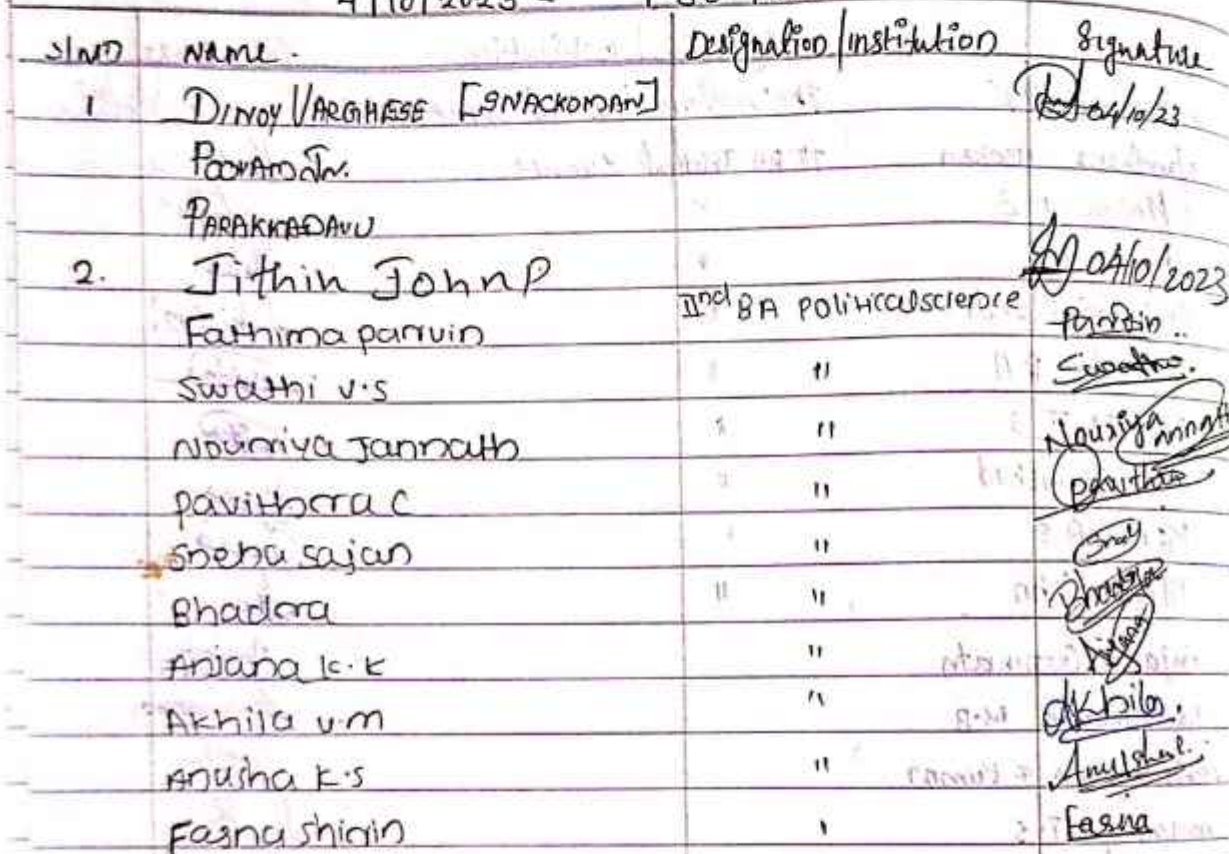 4/10/2023
Sl NO NAME. Designation/institution Signature
1 DINOY VARGHESE [SNACKOMAN] 04/10/23
POOVAM JN.
PARAKKADAVU
2. Jithin John P 04/10/2023
Fathima parvin IInd BA Political science Parvin..
Swathi v.s " Swathi.
Nourriya Jannath " Nousiya Jannath
pavithra C " Pavithra
Sneha sajan " Sneh
Bhadra " Bhadra
Anjana k.k " Anjana
Akhila v.m " Akhila.
Anusha k.s " Anusha.
Fasna shirin " Fasna